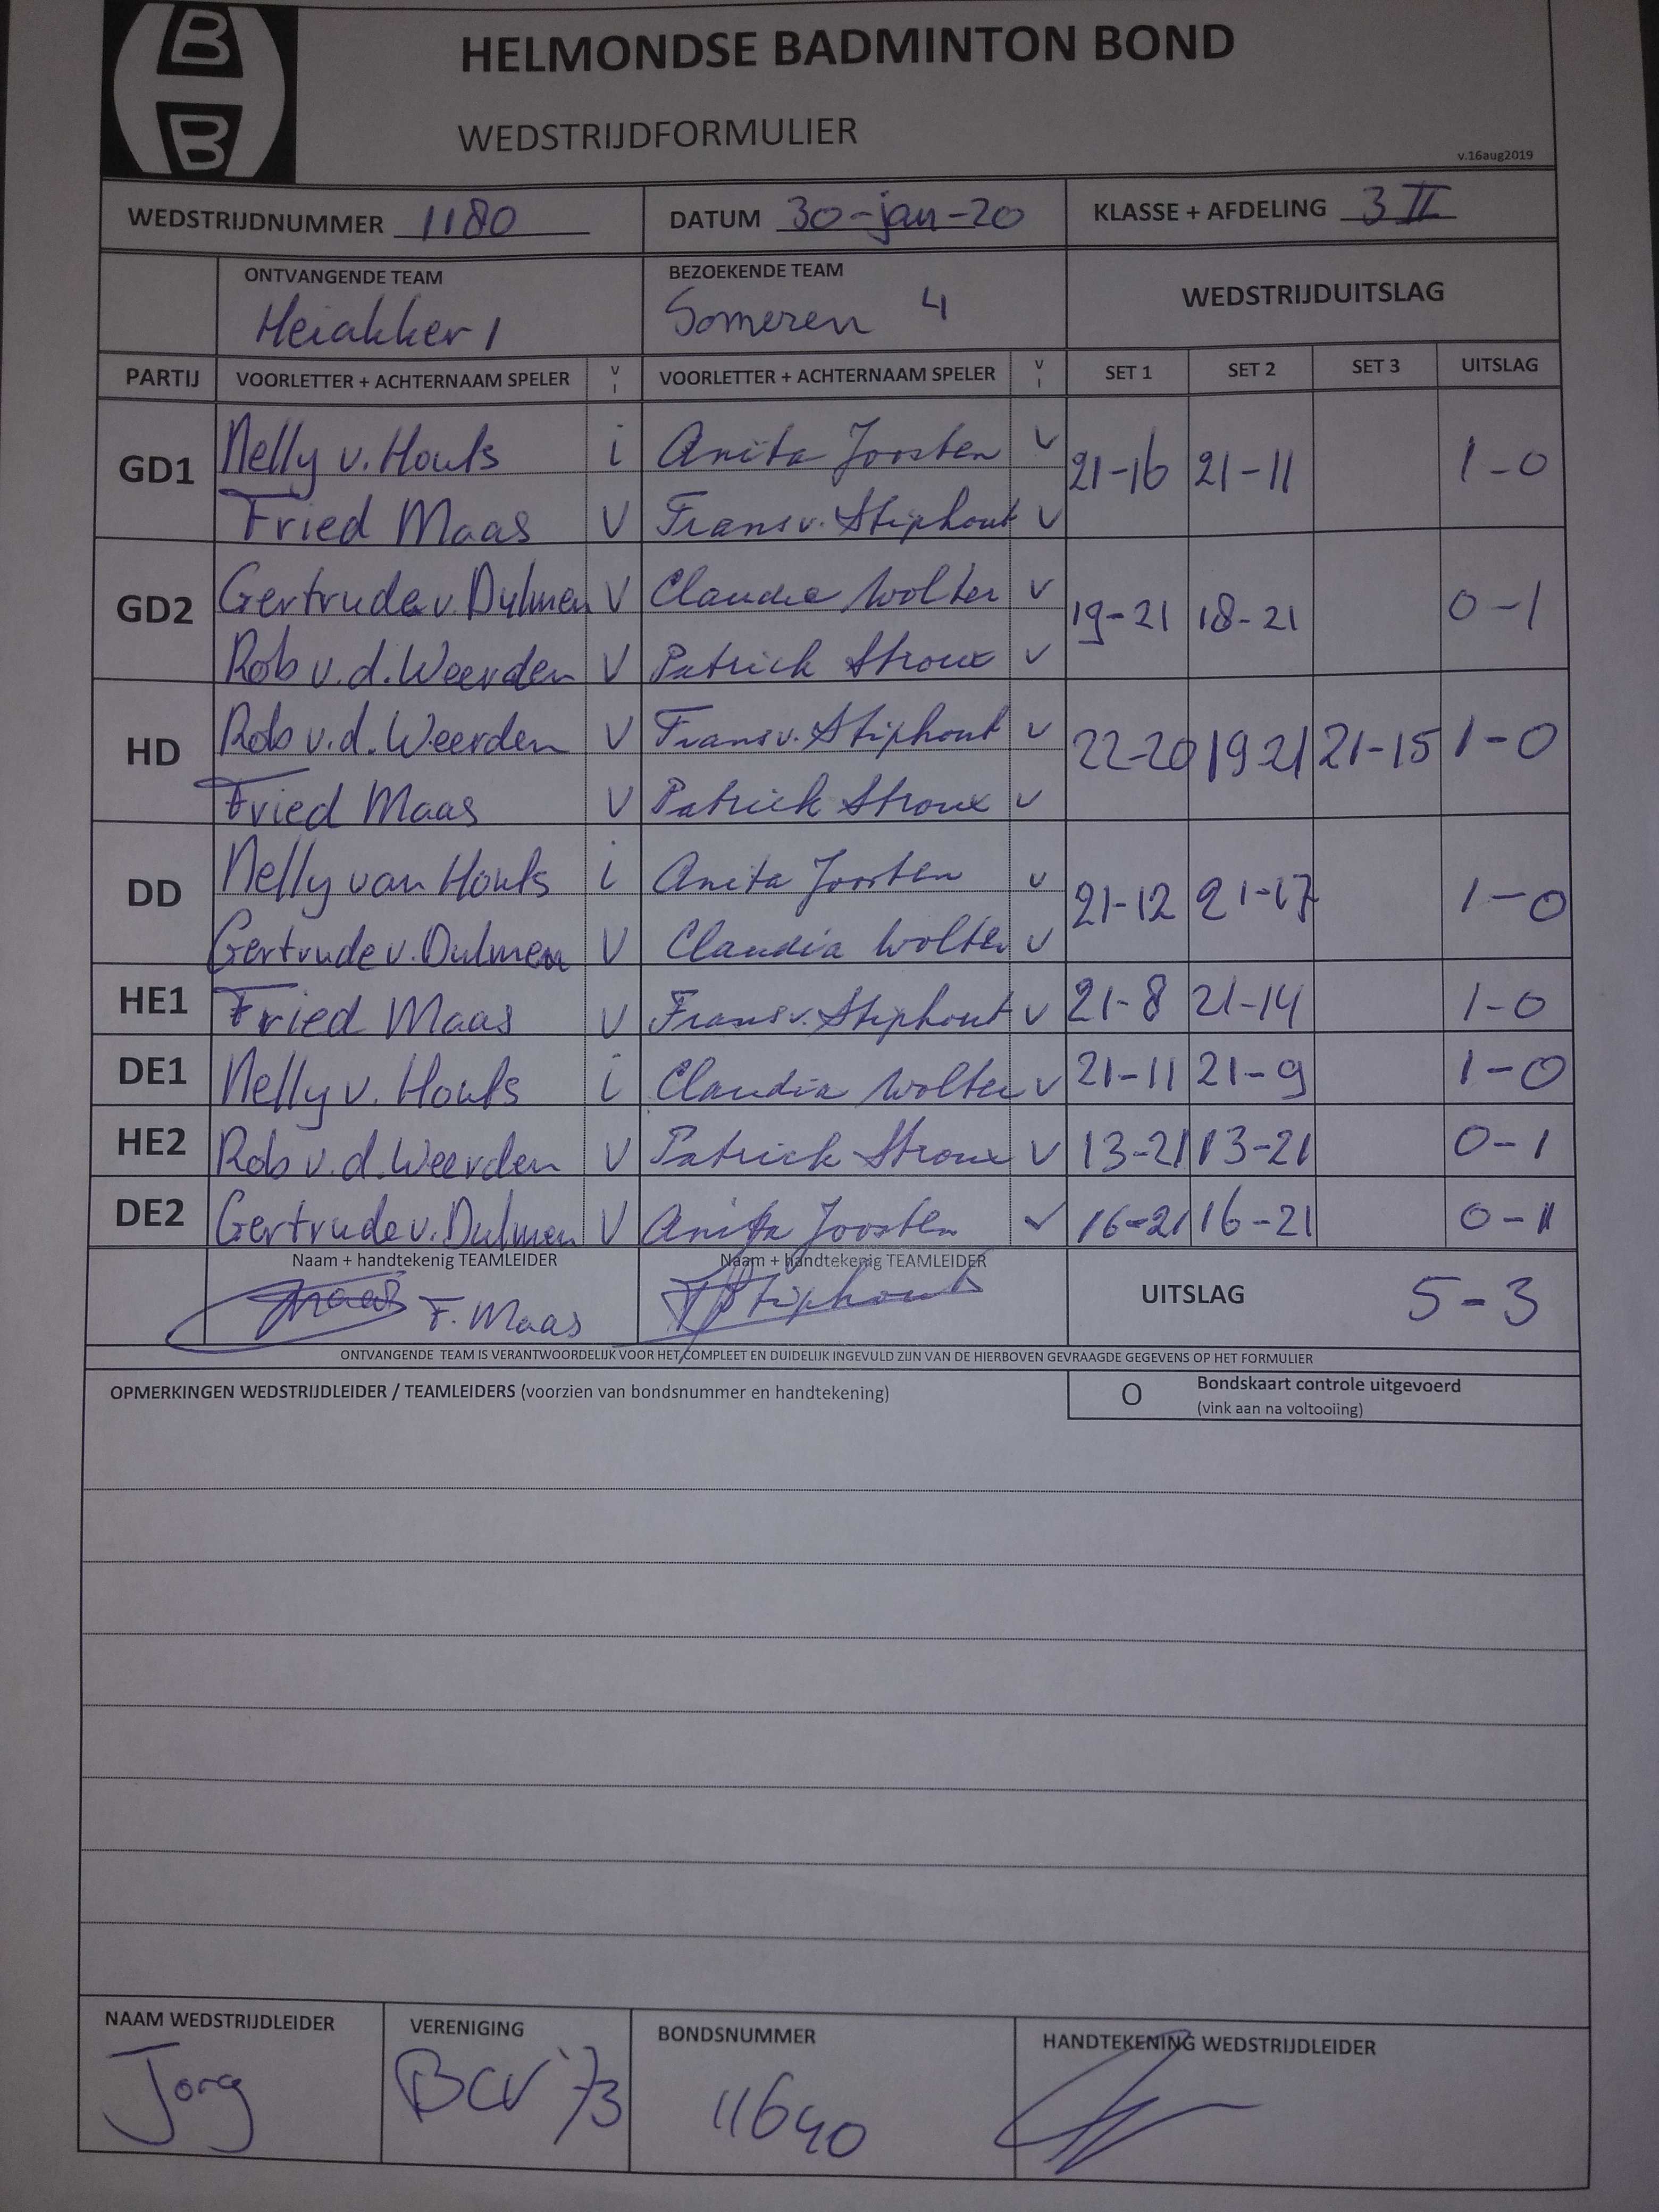 B
B
HELMONDSE BADMINTON BOND
WEDSTRIJDFORMULIER
v.16aug2019
WEDSTRIJDNUMMER 1180 DATUM 30-jan-20 KLASSE + AFDELING 3 II
ONTVANGENDE TEAM BEZOEKENDE TEAM WEDSTRIJDUITSLAG
Heiakker 1 Someren 4
PARTIJ VOORLETTER + ACHTERNAAM SPELER V I VOORLETTER + ACHTERNAAM SPELER V I SET 1 SET 2 SET 3 UITSLAG
GD1 Nelly v. Houts i Anita Joosten v 21-16 21-11 1-0
Fried Maas V Frans v. Stiphout v
GD2 Gertrude v. Dulmen V Claudia Wolter v 19-21 18-21 0-1
Rob v.d. Weerden V Patrick Stroux v
HD Rob v.d. Weerden V Frans v. Stiphout v 22-20 19-21 21-15 1-0
Fried Maas V Patrick Stroux v
DD Nelly van Houts i Anita Joosten v 21-12 21-17 1-0
Gertrude v. Dulmen V Claudia Wolter v
HE1 Fried Maas V Frans v. Stiphout v 21-8 21-14 1-0
DE1 Nelly v. Houts i Claudia Wolter v 21-11 21-9 1-0
HE2 Rob v.d. Weerden V Patrick Stroux v 13-21 13-21 0-1
DE2 Gertrude v. Dulmen V Anita Joosten v 16-21 16-21 0-1
Naam + handtekenig TEAMLEIDER Naam + handtekenig TEAMLEIDER
Maas F. Maas Stiphout UITSLAG 5-3
ONTVANGENDE TEAM IS VERANTWOORDELIJK VOOR HET COMPLEET EN DUIDELIJK INGEVULD ZIJN VAN DE HIERBOVEN GEVRAAGDE GEGEVENS OP HET FORMULIER
OPMERKINGEN WEDSTRIJDLEIDER / TEAMLEIDERS (voorzien van bondsnummer en handtekening) O Bondskaart controle uitgevoerd
(vink aan na voltooiing)
NAAM WEDSTRIJDLEIDER VERENIGING BONDSNUMMER HANDTEKENING WEDSTRIJDLEIDER
Jorg BCV '73 11640